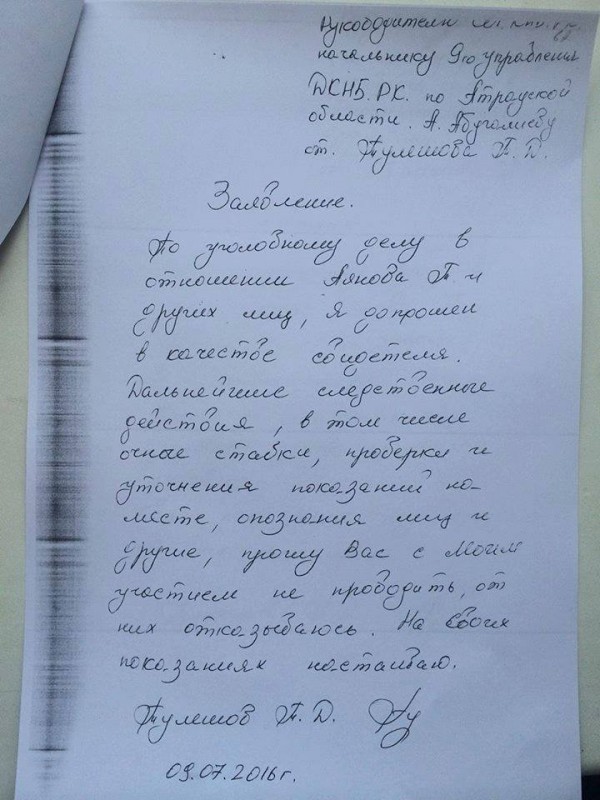 Руководителю
начальнику 9го управления
ДСНБ.РК. по Атрауской
области. А. Абугалиеву
от. Тулешова Т. Д.
Заявление.
По уголовному делу в
отношении Аянова Т. и
других лиц, я допрошен
в качестве свидетеля.
Дальнейшие следственные
действия, в том числе
очные ставки, проверки и
уточнения показаний на-
месте, опознания лиц и
другие, прошу Вас с моим
участием не проводить, от
них отказываюсь. На своих
показаниях настаиваю.
Тулешов Т. Д.
09.07.2016г.